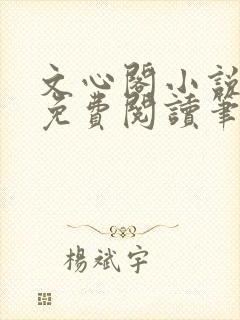 文心閣小說
免費閱讀筆
楊斌宇